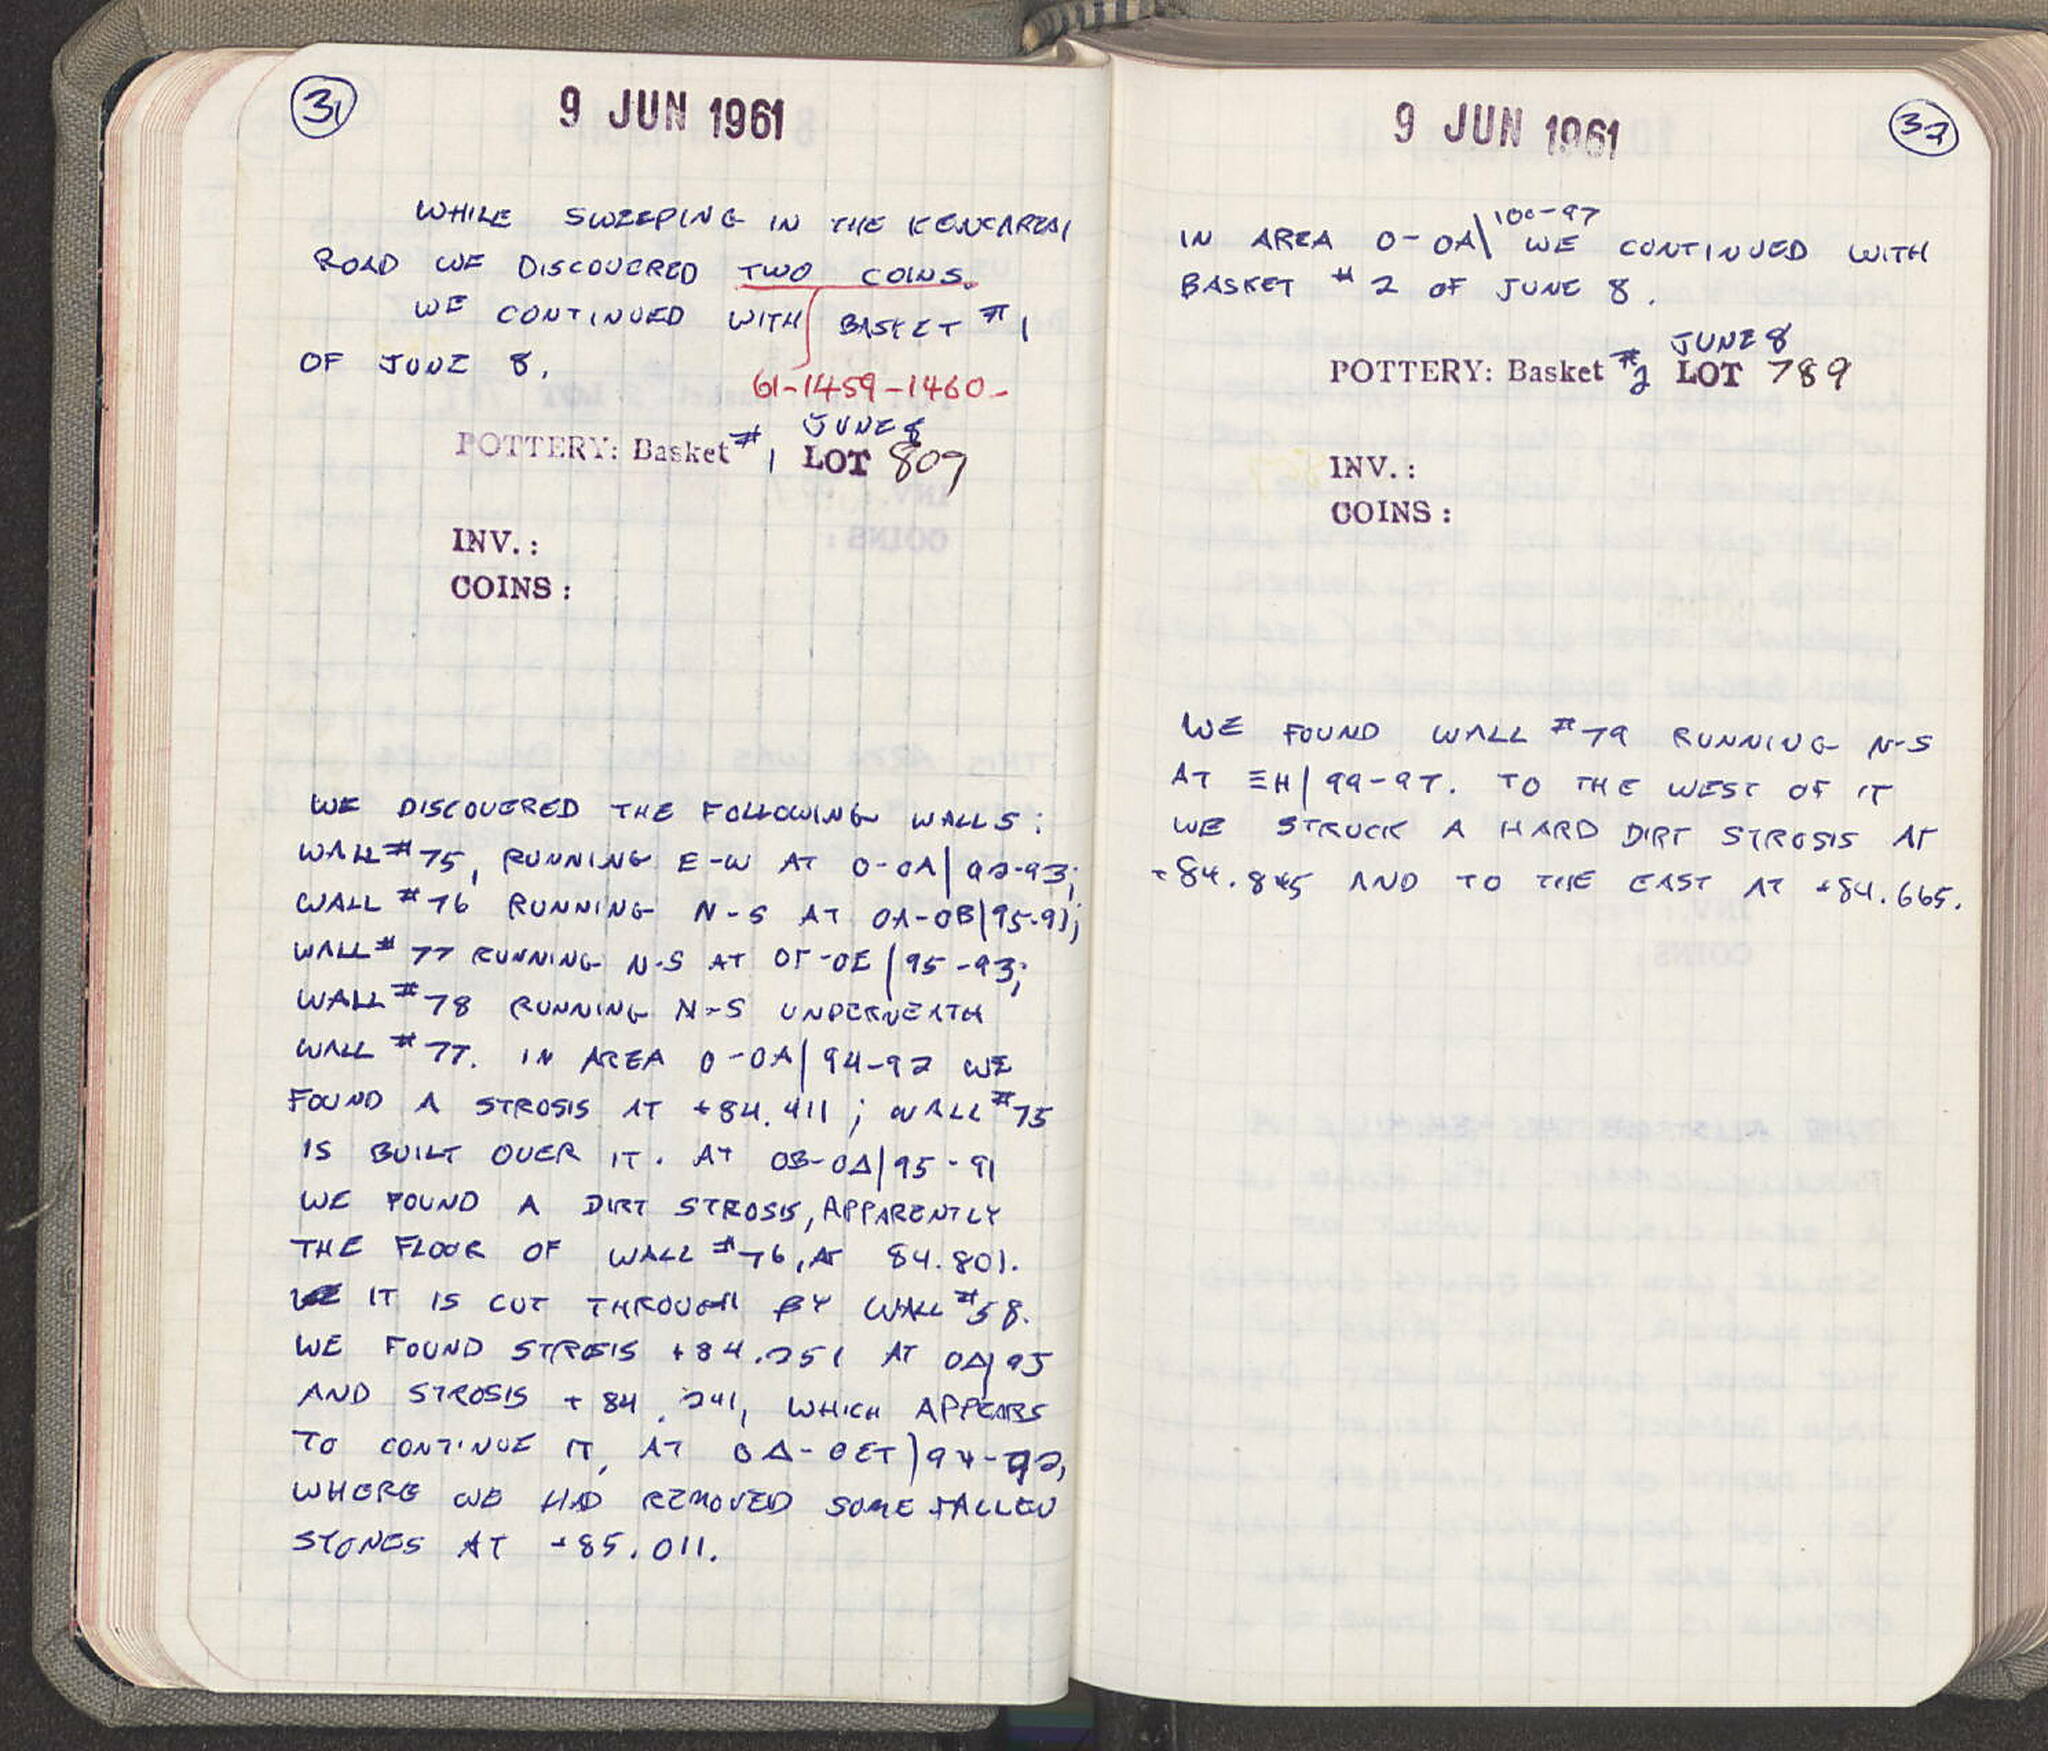 31
9 JUN 1961
WHILE SWEEPING IN THE KENCHREAI
ROAD WE DISCOVERED TWO COINS.
WE CONTINUED WITH BASKET #1
OF JUNE 8.
61-1459-1460-
JUNE 8
POTTERY: Basket #1 LOT 809
INV.:
COINS:
WE DISCOVERED THE FOLLOWING WALLS:
WALL #75, RUNNING E-W AT O-OA|92-93;
WALL #76 RUNNING N-S AT OA-OB|95-91;
WALL #77 RUNNING N-S AT OΓ-OE|95-93;
WALL #78 RUNNING N-S UNDERNEATH
WALL #77. IN AREA O-OA|94-92 WE
FOUND A STROSIS AT +84.411; WALL #75
IS BUILT OVER IT. AT OB-OΔ|95-91
WE FOUND A DIRT STROSIS, APPARENTLY
THE FLOOR OF WALL #76, AT 84.801.
IT IS CUT THROUGH BY WALL #58.
WE FOUND STROSIS +84.251 AT OΔ|95
AND STROSIS +84.241, WHICH APPEARS
TO CONTINUE IT, AT OΔ-OET|94-92,
WHERE WE HAD REMOVED SOME FALLEN
STONES AT +85.011.
32
9 JUN 1961
100-97
IN AREA O-OA| WE CONTINUED WITH
BASKET #2 OF JUNE 8.
JUNE 8
POTTERY: Basket #2 LOT 789
INV.:
COINS:
WE FOUND WALL #79 RUNNING N-S
AT ΞH|99-97. TO THE WEST OF IT
WE STRUCK A HARD DIRT STROSIS AT
AND TO THE EAST AT +84.665.